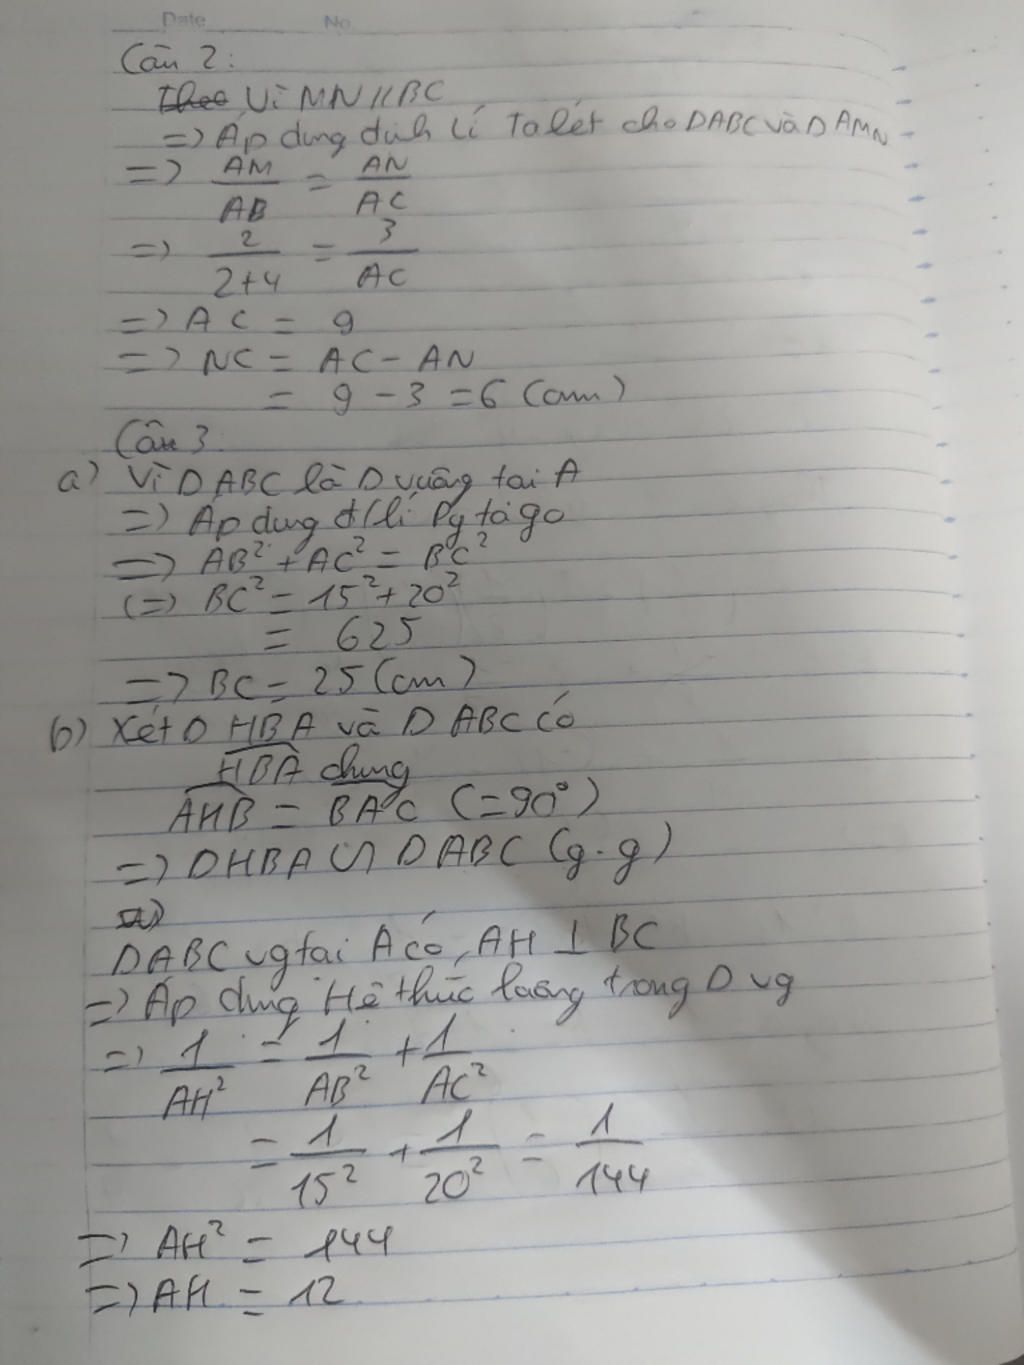 Date No
Câu 2:
Theo Vì MN // BC
=> Áp dụng định lí Talét cho DABC và DAMN
=> AM/AB = AN/AC
=> 2/2+4 = 3/AC
=> AC = 9
=> NC = AC - AN
= 9 - 3 = 6 (cm)
Câu 3
a) Vì DABC là D vuông tại A
=> Áp dụng đ/lí Pytago
=> AB² + AC² = BC²
(=) BC² = 15² + 20²
= 625
=> BC = 25 (cm)
b) Xét D HBA và D ABC có
HBA chung
AHB = BAC (= 90°)
=> DHBA ∽ DABC (g.g)
DABC vg tại A có, AH ⊥ BC
=> Áp dụng Hệ thức lượng trong D vg
=> 1/AH² = 1/AB² + 1/AC²
= 1/15² + 1/20² = 1/144
=> AH² = 144
=> AH = 12